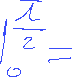 ∫₀^(π/2) =